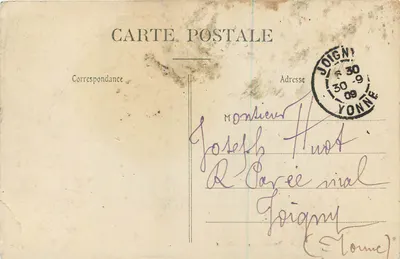 CARTE POSTALE
Correspondance
Adresse
JOIGNY
30
30 - 9
09
YONNE
Monsieur
Joseph Huot
R
Joigny
(Yonne)